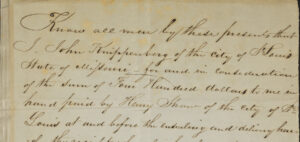 Know all men by these presents that
I John Knippenberg of the city of St Louis
State of Missouri for and in consideration
of the sum of Four Hundred dollars to me in
hand paid by Henry Shaw of the city of St
Louis at and before the ensealing and delivery